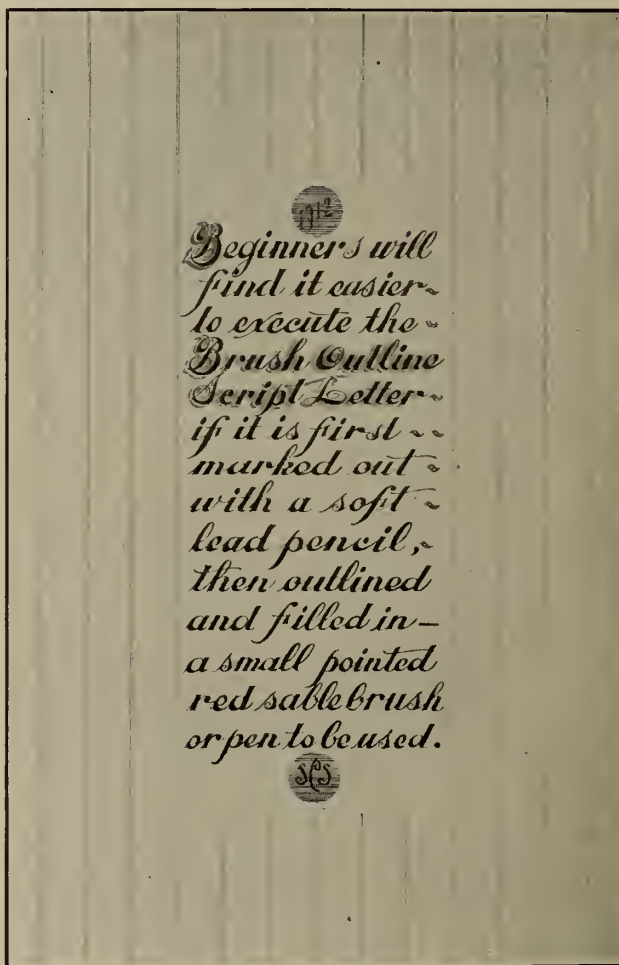 1912
Beginners will
find it easier~
to execute the ~
Brush Outline
Script Letter~
if it is first ~ ~
marked out ~
with a soft ~
lead pencil,~
then outlined
and filled in—
a small pointed
red sable brush
or pen to be used.
SCS